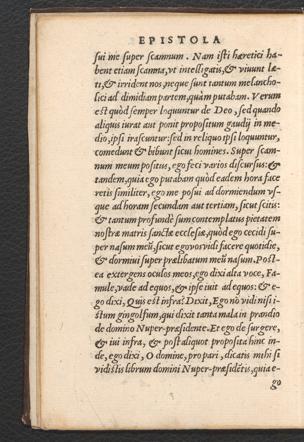 EPISTOLA
sui me super scannum. Nam isti hæretici ha-
bent etiam scamna, vt intelligatis, & viuunt læ-
ti, & irrident nos, neque sunt tantum melancho-
lici ad dimidiam partem, quàm putabam. Verum
est quòd semper loquuntur de Deo, sed quando
aliquis iurat aut ponit propositum gaudij in me-
dio, ipsi irascuntur: sed in reliquo ipsi loquuntur,
comedunt & bibunt sicut homines. Super scam-
num meum positus, ego feci varios discursus: &
tandem, quia ego putabam quòd eadem hora face
retis similiter, ego me posui ad dormiendum vs-
que ad horam secundam aut tertiam, sicut scitis:
& tantum profundè sum contemplatus pietatem
nostræ matris sanctæ ecclesiæ, quòd ego cecidi su-
per nasum meū, sicut ego vos vidi facere quotidie,
& dormiui super prælibatum meū nasum. Post-
ea extergens oculos meos, ego dixi alta voce, Fa-
mule, vade ad equos, & ipse iuit ad equos: & e-
go dixi, Quis est infra? Dixit, Ego nō vidi nisi i-
stum gingolfum, qui dixit tanta mala in prandio
de domino Nuper-præsidente. Et ego de surgere,
& iui infra, & post aliquot proposita hinc in-
de, ego dixi, O domine, pro pari, dicatis mihi si
vidistis librum domini Nuper-præsidētis, quia e-
go